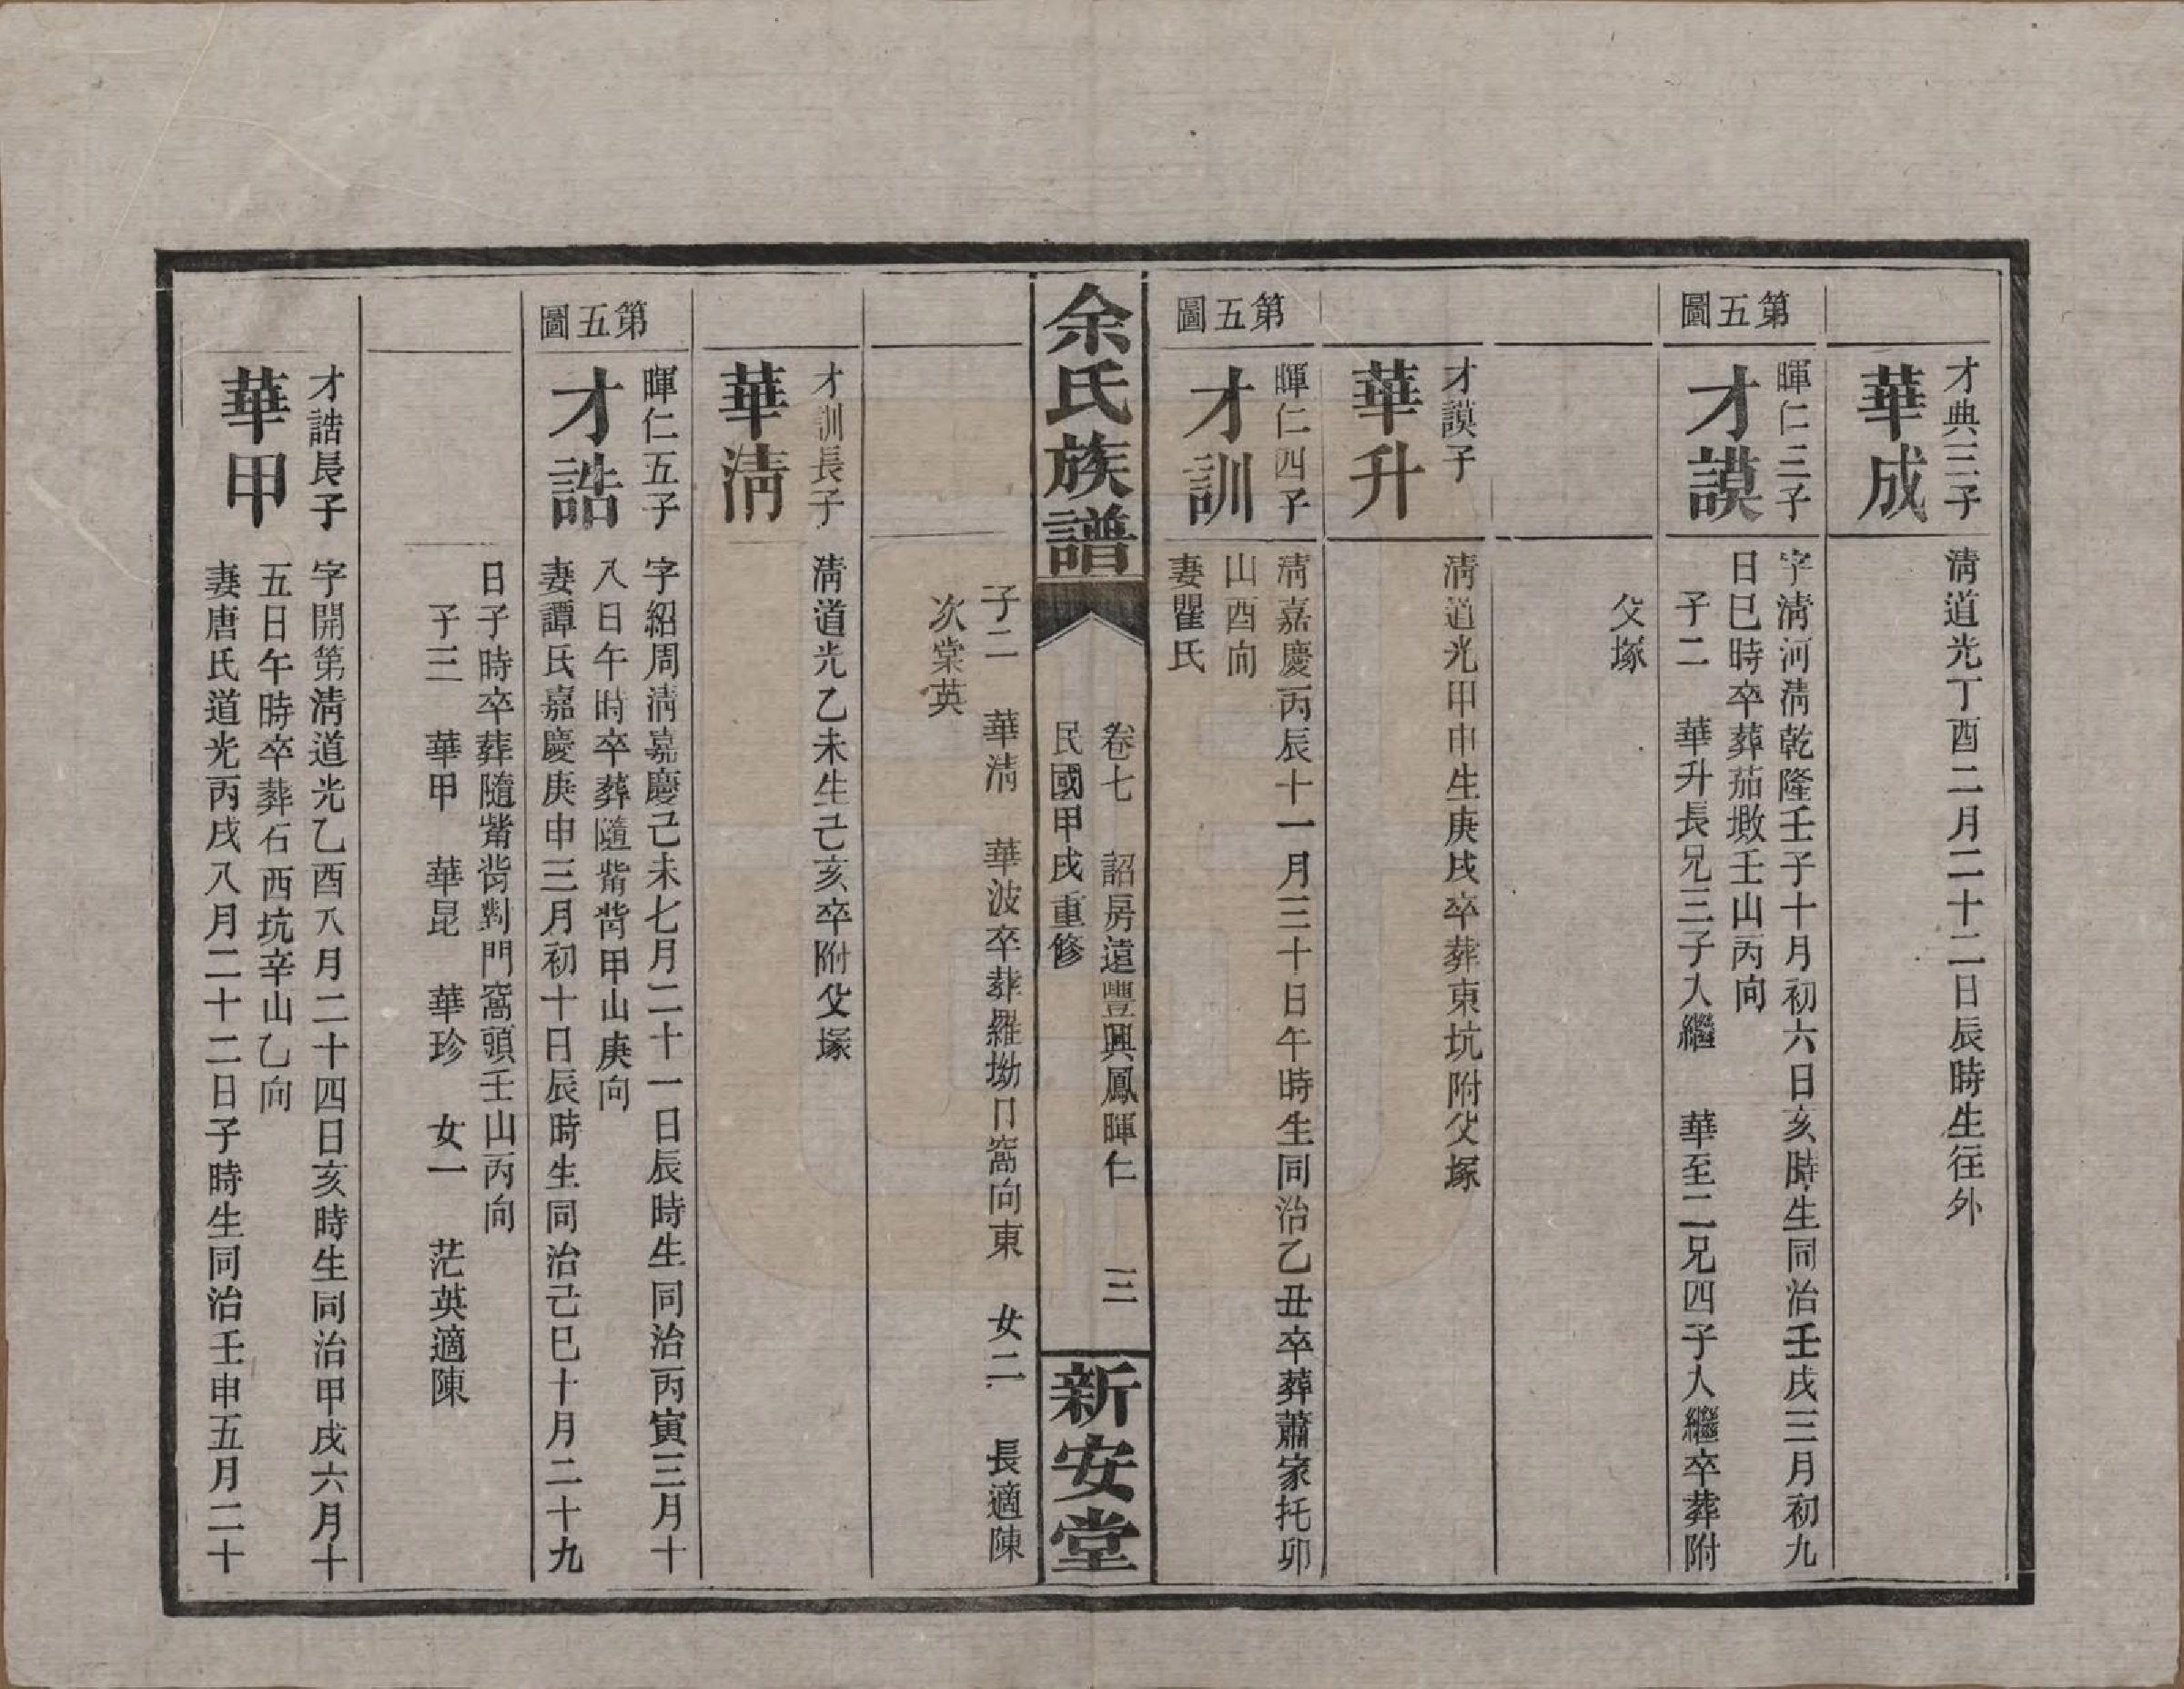 才典三子
華成
淸道光丁酉二月二十二日辰時生往外
第五圖
暉仁三子
才謨
字淸河淸乾隆壬子十月初六日亥時生同治壬戌三月初九
日巳時卒葬茄墩壬山丙向
子二　華升長兄三子入繼　華至二兄四子入繼卒葬附
父塚
才謨子
華升
淸道光甲申生庚戌卒葬東坑附父塚
第五圖
暉仁四子
才訓
淸嘉慶丙辰十一月三十日午時生同治乙丑卒葬蕭家托卯
山酉向
妻瞿氏
余氏族譜
卷七　詔房遠豐興鳳暉仁　三
民國甲戌重修
新安堂
子二　華淸　華波卒葬羅坳口窩向東　女二　長適陳
次棠英
才訓長子
華淸
淸道光乙未生己亥卒附父塚
第五圖
暉仁五子
才誥
字紹周淸嘉慶己未七月二十一日辰時生同治丙寅三月十
八日午時卒葬隨觜背甲山庚向
妻譚氏嘉慶庚申三月初十日辰時生同治己巳十月二十九
日子時卒葬隨觜背對門窩頭壬山丙向
子三　華甲　華昆　華珍　女一　茫英適陳
才誥長子
華甲
字開第淸道光乙酉八月二十四日亥時生同治甲戌六月十
五日午時卒葬石西坑辛山乙向
妻唐氏道光丙戌八月二十二日子時生同治壬申五月二十